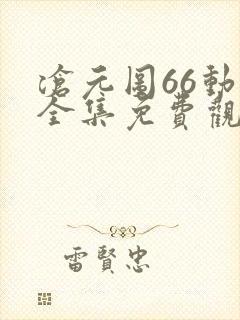 滄元圖66動
全集免費觀
雷賢忠